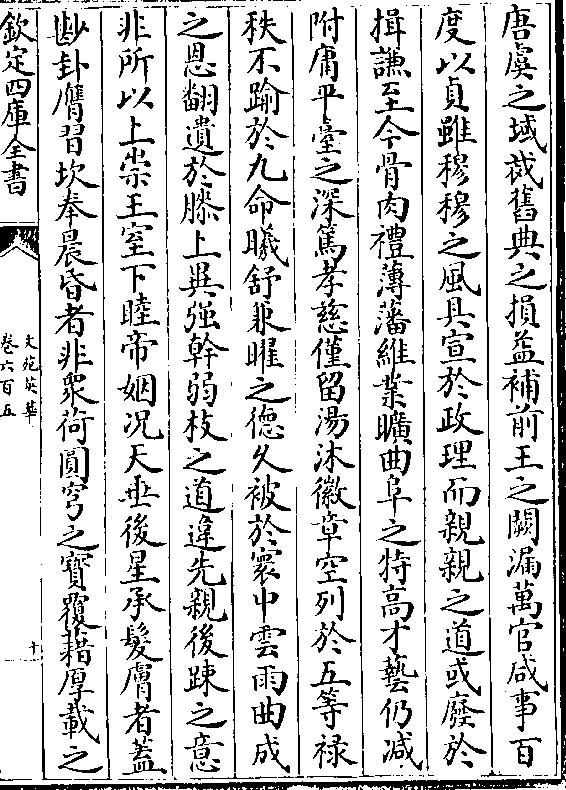 唐虞之域裁舊典之損益補前王之闕漏萬官咸事百
度以貞雖穆穆之風具宣於政理而親親之道或廢於
揖謙至今骨肉禮薄藩維業曠曲阜之特高才藝仍减
附庸平臺之深篤孝慈僅留湯沐徽章空列於五等禄
秩不踰於九命曦舒兼曜之德久被於寰中雲雨曲成
之恩翻遺於膝上異強幹弱枝之道違先親後踈之意
非所以上崇王室下睦帝姻况天垂後星承髮膚者蓋
尠卦膺習坎奉晨昏者非衆荷圓穹之寶覆藉厚載之
欽定四庫全書
文苑英華
卷六百五
十